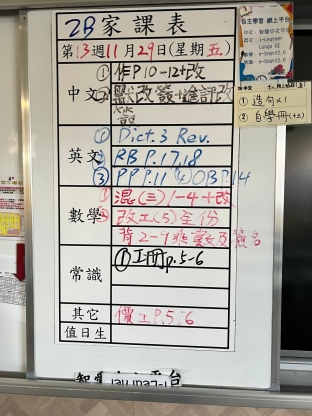 2B 家課表
第13週11月29日(星期五)
中文
① 作P.10-12+改
② 默改簽+進訂改
簽
英文
① Dict. 3 Rev.
② RB P.17,18
③ PP P.11 ④ OB P.14
數學
① 混(三)1-4+改
② 改工(5)全份
背2-9乘數及簽名
常識
① 工冊p.5-6
其它
價工P.5,6
值日生
自主學習 網上平台
① 造句x1
② 自學冊